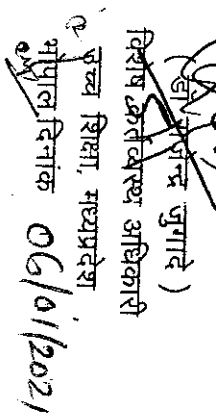 जुगादे )
विशेष कर्तव्यस्थ अधिकारी
उच्च शिक्षा, मध्यप्रदेश
भोपाल दिनांक 06/01/2021